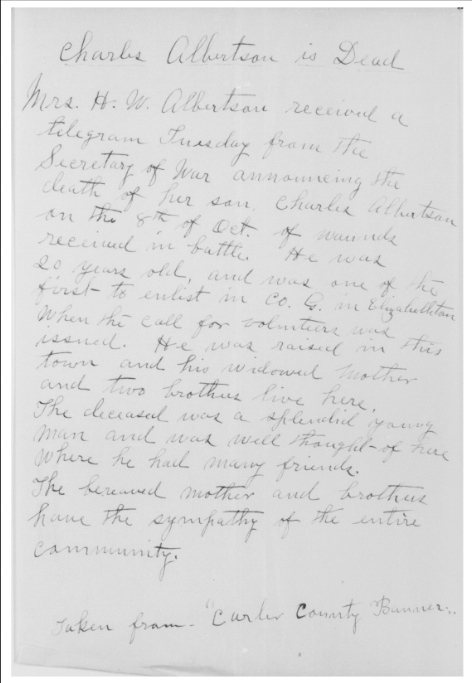 Charles Albertson is Dead
Mrs. H. W. Albertson received a
telegram Tuesday from the
Secretary of War announcing the
death of her son, Charles Albertson
on the 8th of Oct. of wounds
received in battle. He was
20 years old, and was one of the
first to enlist in Co. G. in Elizabethton
when the call for volunteers was
issued. He was raised in this
town and his widowed mother
and two brothers live here.
The deceased was a splendid young
man and was well thought of here
where he had many friends.
The bereaved mother and brothers
have the sympathy of the entire
community.
Taken from - "Carter County Banner".